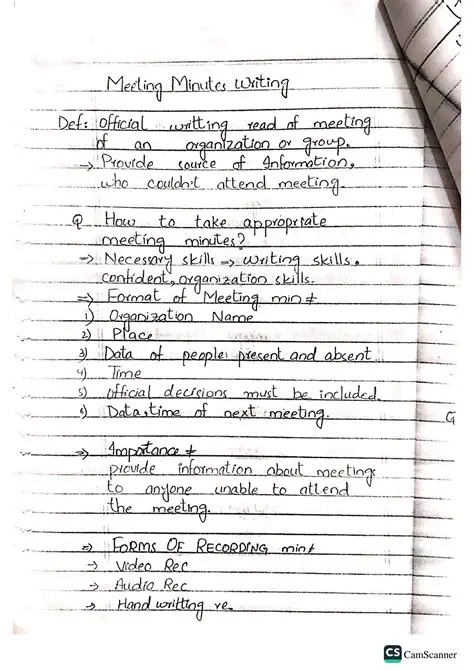 Meeting Minutes Writing
Def: official writting read of meeting
of an organization or group.
→ Provide source of Information,
who couldn't attend meeting.
Q How to take appropriate
meeting minutes?
⇒ Necessary skills ⇒ writing skills,
confident, organization skills.
⇒ Format of Meeting min
1) Organization Name
2) Place
3) Data of people present and absent
4) Time
5) official decisions must be included.
6) Data, time of next meeting.
G
⇒ Importance
provide information about meeting
to anyone unable to attend
the meeting.
⇒ FORMS OF RECORDING min
→ Video Rec
→ Audio Rec
→ Hand writting re.
CS CamScanner